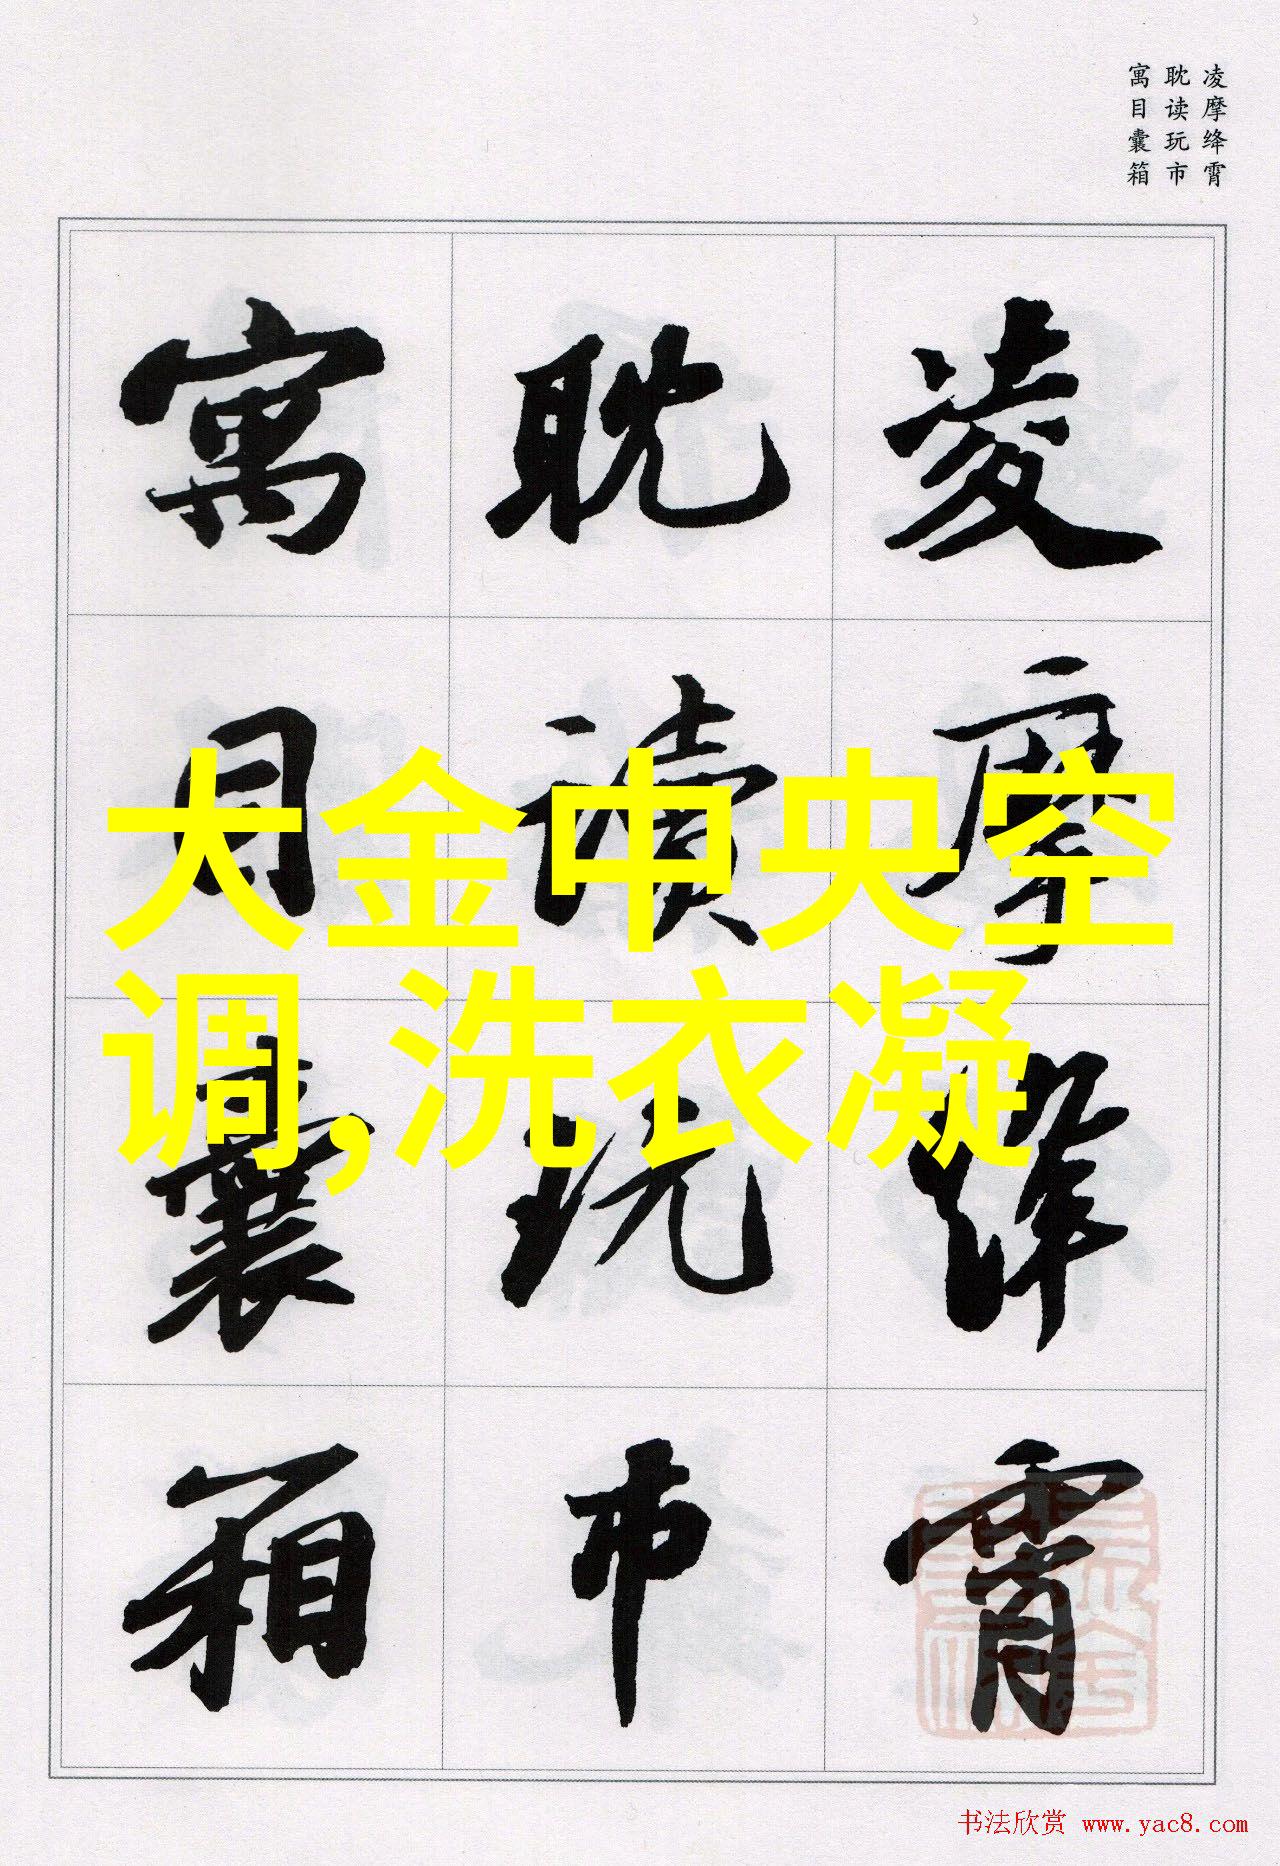 凌摩绛霄
耽读玩市
寓目囊箱
凌摩绛霄
耽读玩市
寓目囊箱
大金中央空
调,洗衣凝
书法欣赏 www.yac8.com